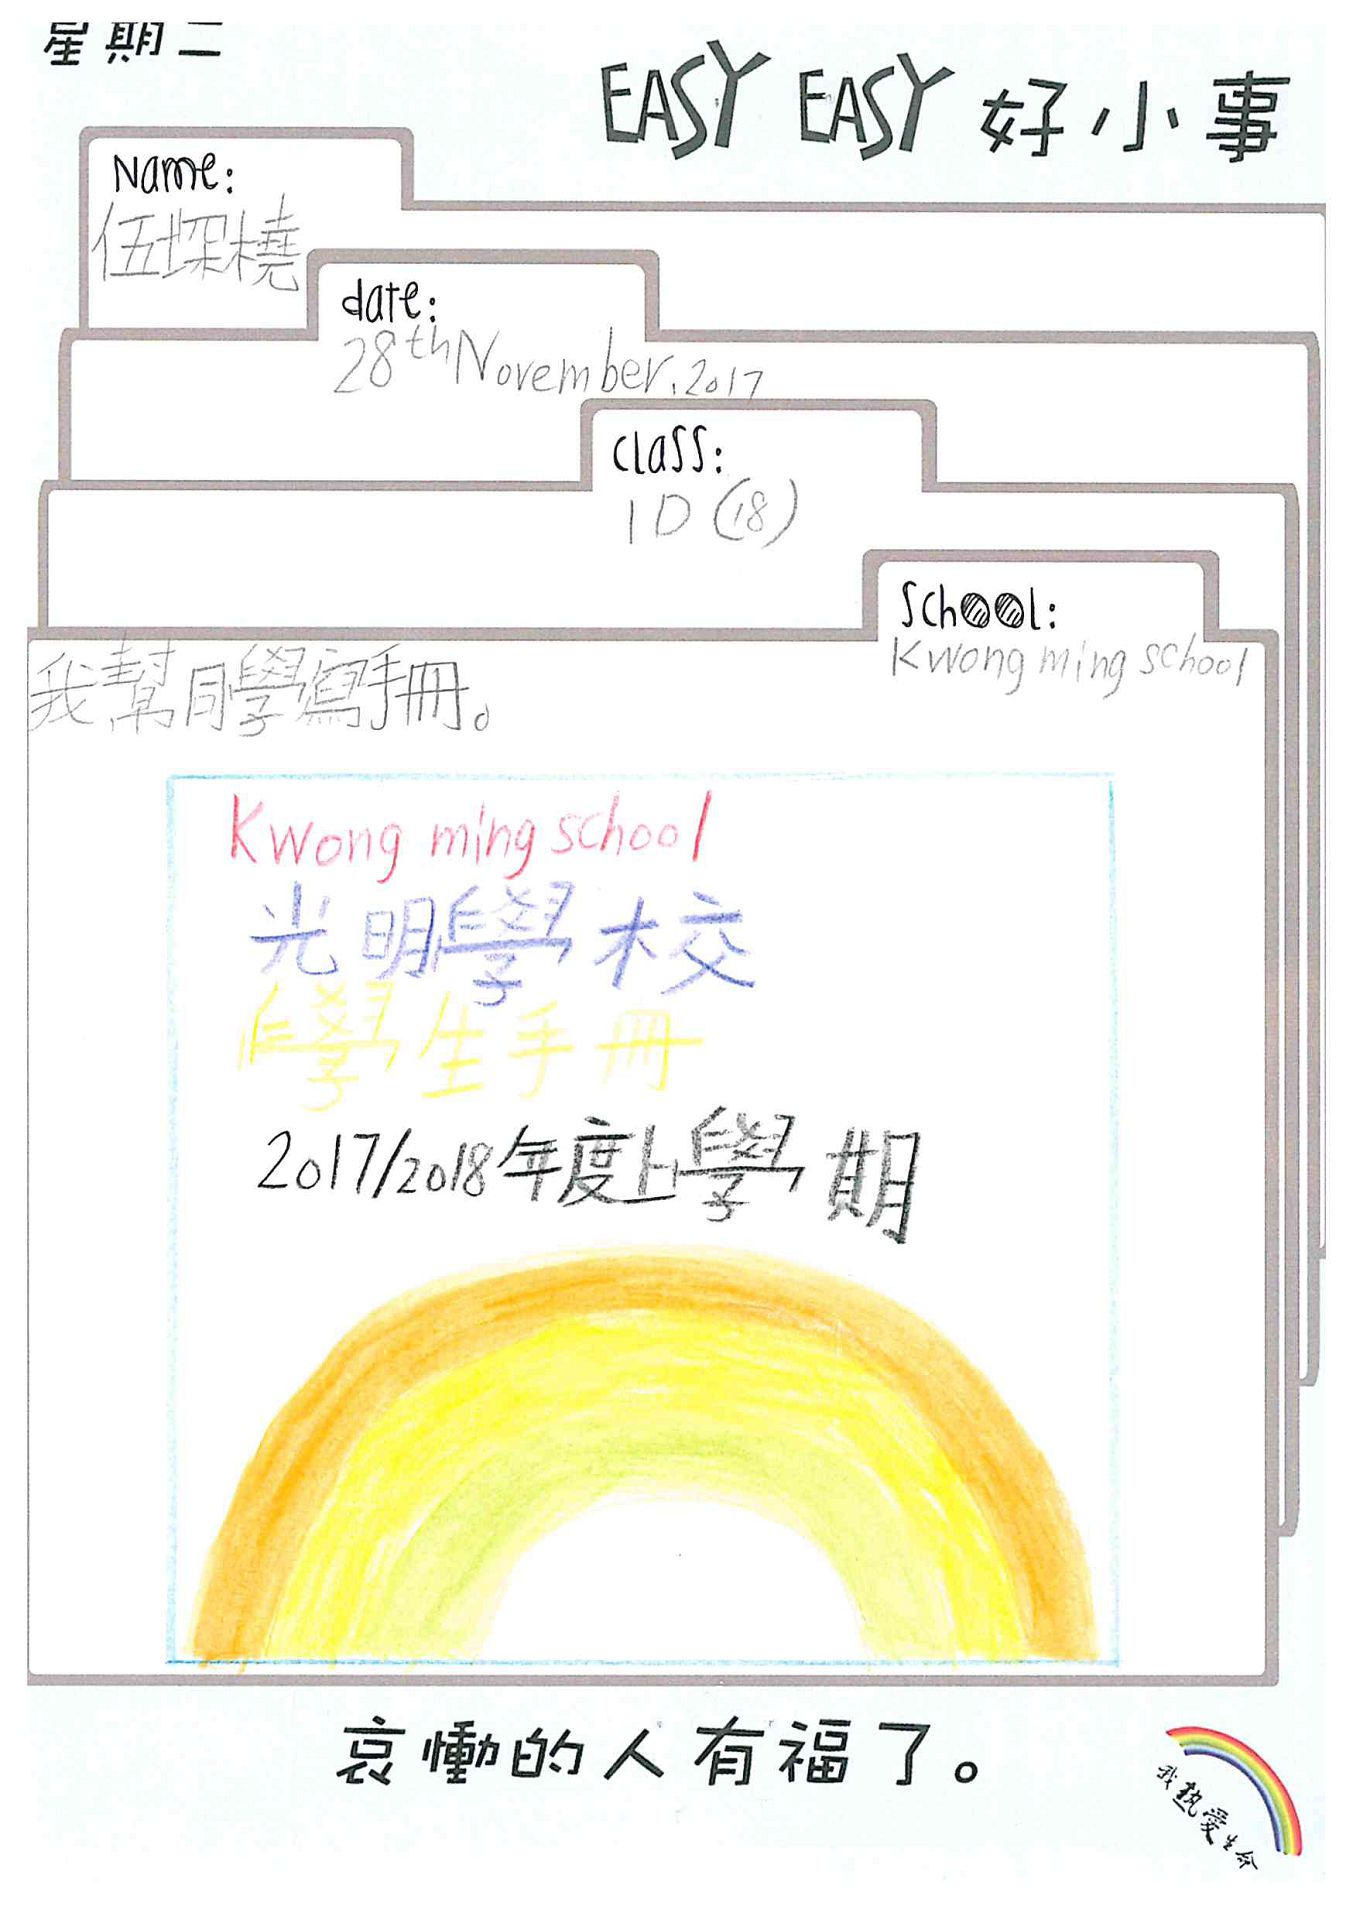 星期二
EASY EASY 好小事
Name:
伍堔橈
date:
28th November.2017
Class:
1D (18)
School:
Kwong ming school
我幫同學寫手冊。
Kwong ming school
光明學校
學生手冊
2017/2018年度上學期
哀慟的人有福了。
我熱愛生命